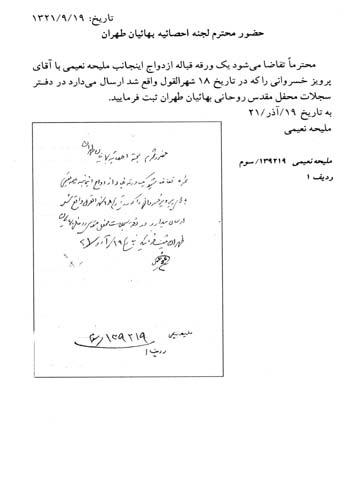 تاریخ: ۱۳۲۱/۹/۱۹
حضور محترم لجنه احصائیه بهائیان طهران
محترماً تقاضا می‌شود یک ورقه قباله ازدواج اینجانب ملیحه نعیمی با آقای
پرویز خسروانی را که در تاریخ ۱۸ شهرالقول واقع شد ارسال می‌دارد در دفتر
سجلات محفل مقدس روحانی بهائیان طهران ثبت فرمایید.
به تاریخ ۱۹/آذر/۲۱
ملیحه نعیمی
ملیحه نعیمی ۱۳۹۲۱۹/سوم
ردیف ۱
حضور محترم لجنه احصائیه بهائیان طهران
طهران ثبت ۱۹/آذر/۲۱
ملیحه نعیمی
۱۳۹۲۱۹
ردیف ۱